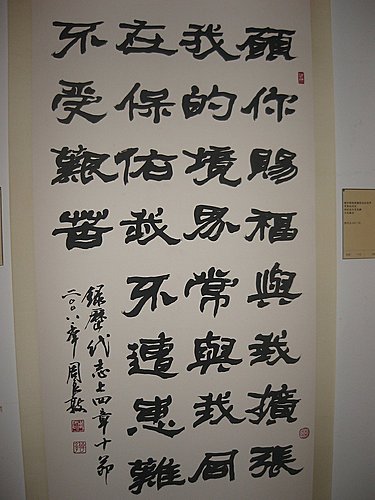 願你賜福與我擴張
我的境界常與我同
在保佑我不遭患難
不受艱苦
錄歷代志上四章十節
二〇〇八年周